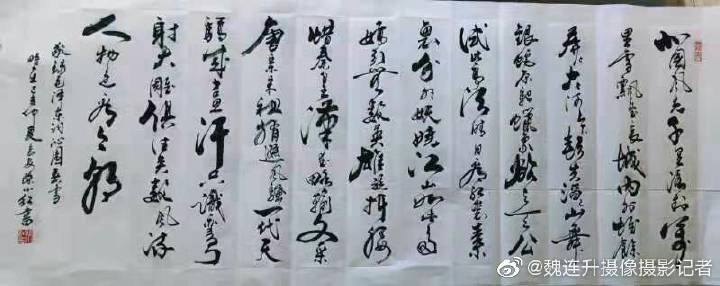 北国风光千里冰封万
里雪飘望长城内外惟馀
莽莽大河上下顿失滔滔山舞
银蛇原驰蜡象欲与天公
试比高须晴日看红装素
裹分外妖娆江山如此多
娇引无数英雄竞折腰
惜秦皇汉武略输文采
唐宗宋祖稍逊风骚一代天
骄成吉思汗只识弯弓
射大雕俱往矣数风流
人物还看今朝
敬录毛泽东词沁园春雪
仲夏 书
@魏连升摄像摄影记者